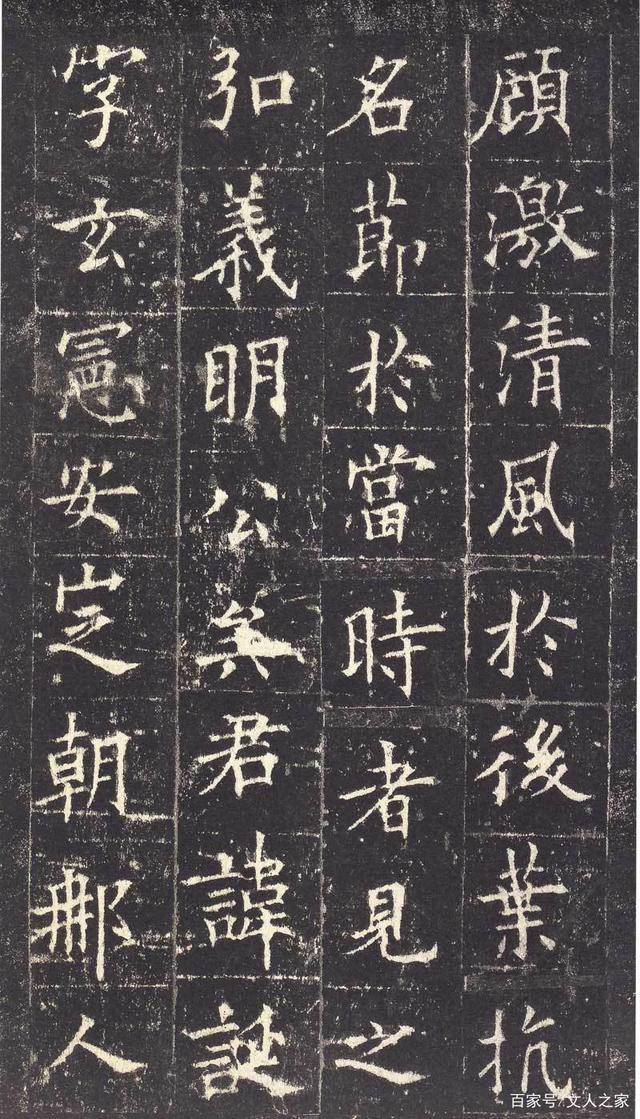 顧激清風於後葉抗
名節於當時者見之
弘義明公矣君諱誕
字玄憲安定朝那人
百家号/文人之家